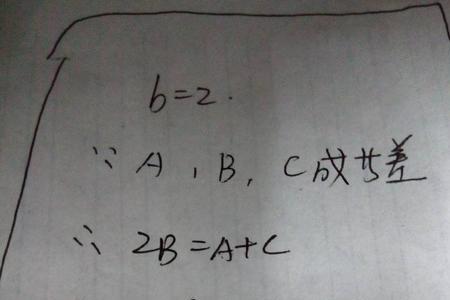 b=2.
∵ A, B, C成等差
∴ 2B=A+C